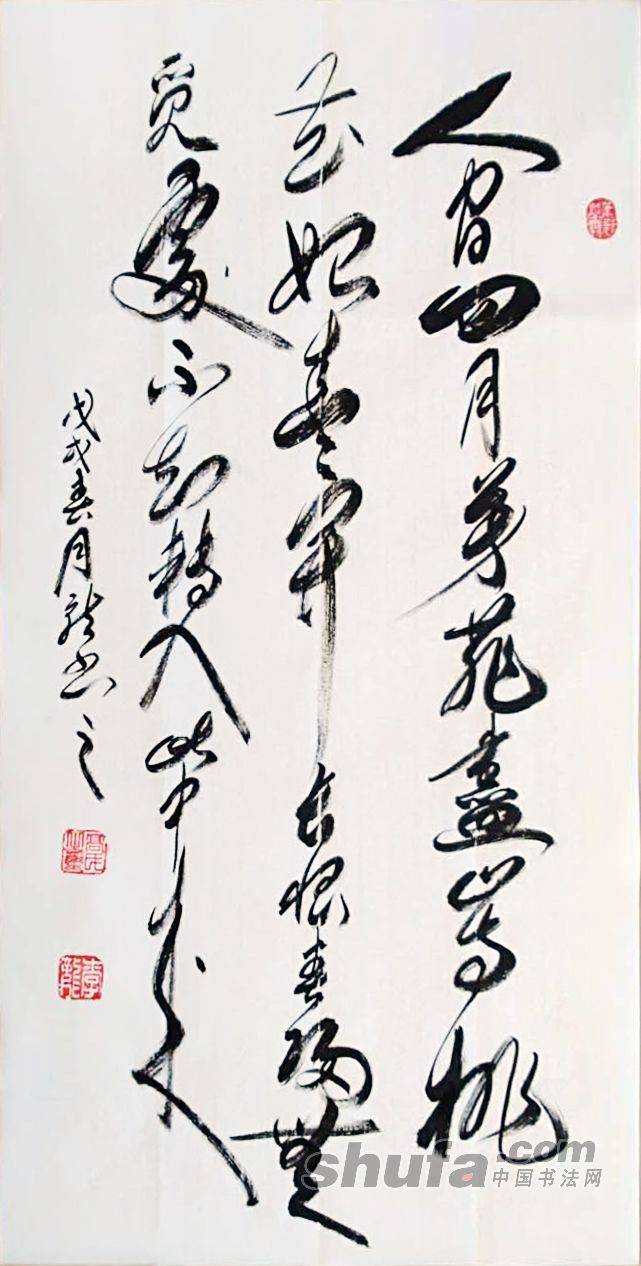 人間四月芳菲盡山寺桃
花始盛開長恨春歸無
覓處不知轉入此中來
戊戌春月龍書之
李龍
shufa.com
中国书法网